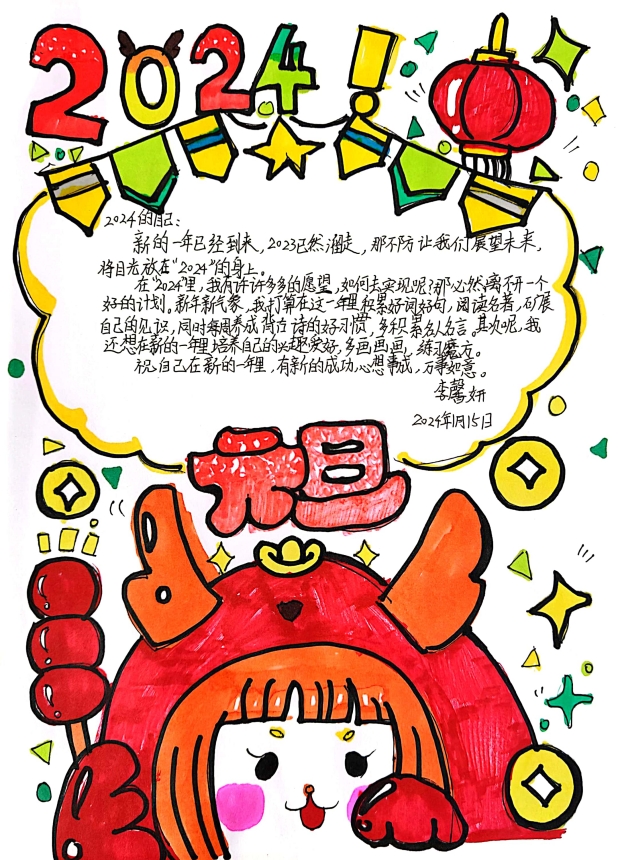 2024!
2024的自己:
新的一年已经到来,2023已然溜走,那不防让我们展望未来,
将目光放在“2024”的身上。
在“2024”里,我有许许多多的愿望,如何去实现呢?那必然离不开一个
好的计划。新年新气象,我打算在这一年里积累好词好句,阅读名著,扩展
自己的见识,同时每周养成背古诗的好习惯,多积累名人名言。其次呢,我
还想在新的一年里培养自己的兴趣爱好,多画画画,练习魔方。
祝自己在新的一年里,有新的成功,心想事成,万事如意。
李馨妍
2024年1月15日
元旦